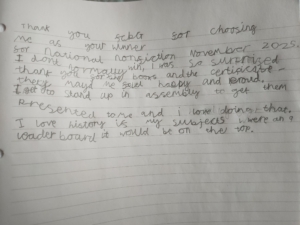 Thank you for choosing
me as your winner
for National nonfiction November 2025.
I dont normally win, was so surprised
thank you for my books and the certificate -
they mayd me feel happy and proud.
I got to stand up in assembly to get them
presented to me and i love doing that.
I love history is my subjects were on a
leader board it would be on the top.